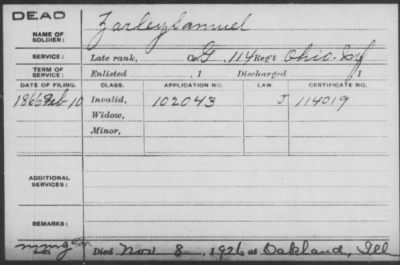 DEAD
NAME OF SOLDIER: Zarley Samuel
SERVICE: Late rank, Co. G, 114 Reg't Ohio Inf
TERM OF SERVICE: Enlisted , 1 Discharged , 1
DATE OF FILING. CLASS. APPLICATION NO. LAW. CERTIFICATE NO.
1866 Feb 10 Invalid, 102043 J 114019
Widow,
Minor,
ADDITIONAL SERVICES:
REMARKS:
Died Nov 8, 1926 at Oakland, Ill